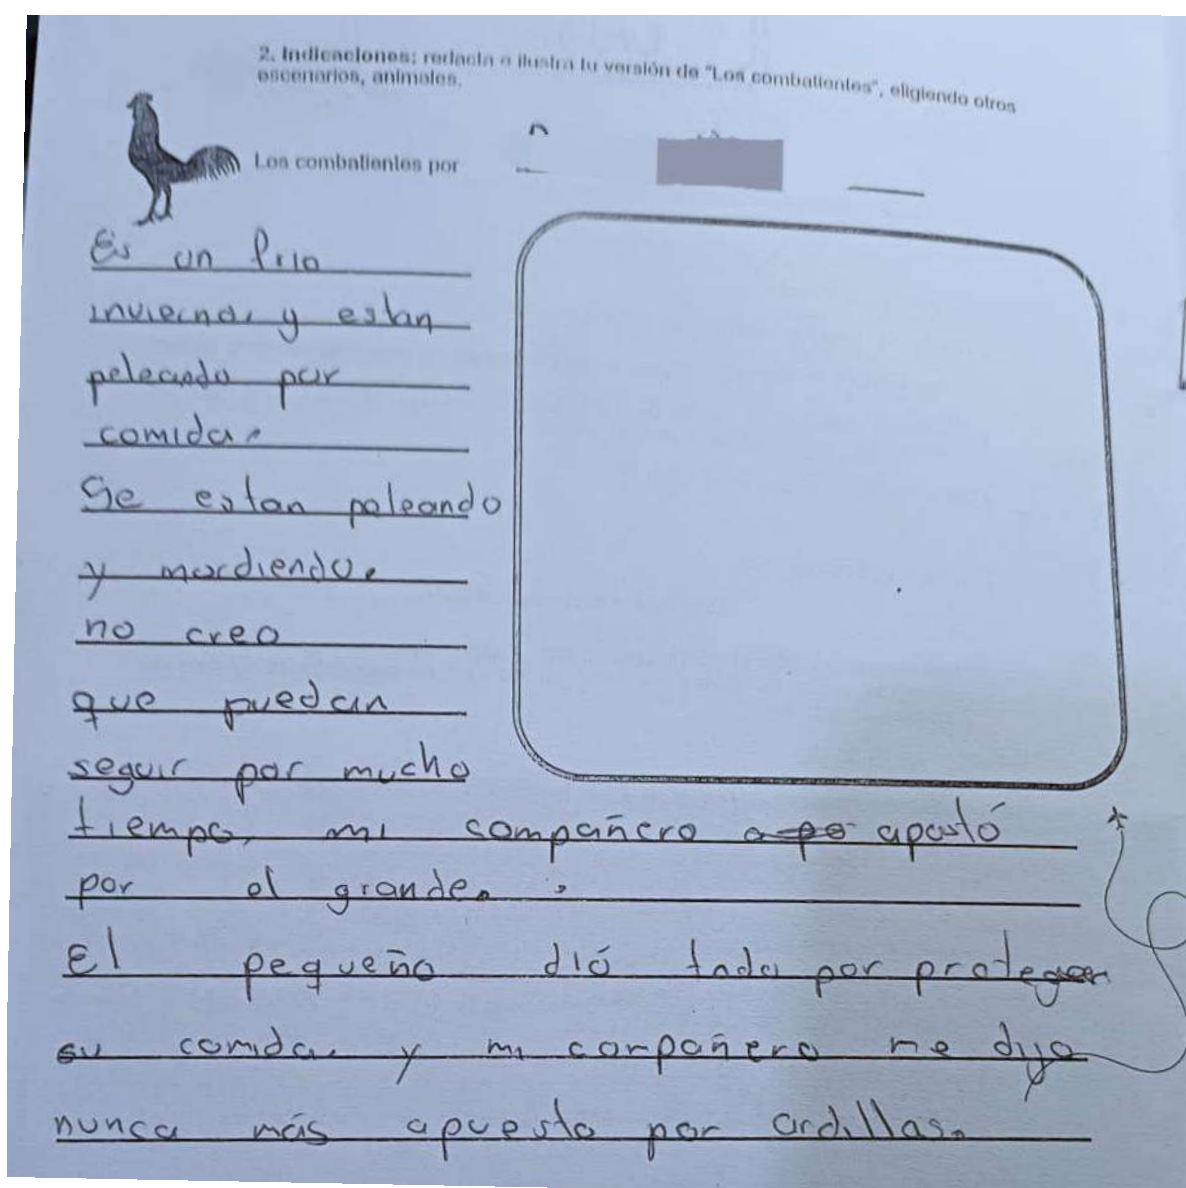 2. Indicaciones: redacta e ilustra tu versión de "Los combatientes", eligiendo otros
escenarios, animales.
Los combatientes por
Es un frio
invierno, y estan
peleando por
comida.
Se estan peleando
y mordiendo.
no creo
que puedan
seguir por mucho
tiempo, mi compañero a po apostó
por el grande.
El pequeño dió todo por proteger
su comida, y mi compañero me dijo
nunca más apuesto por ardillas.